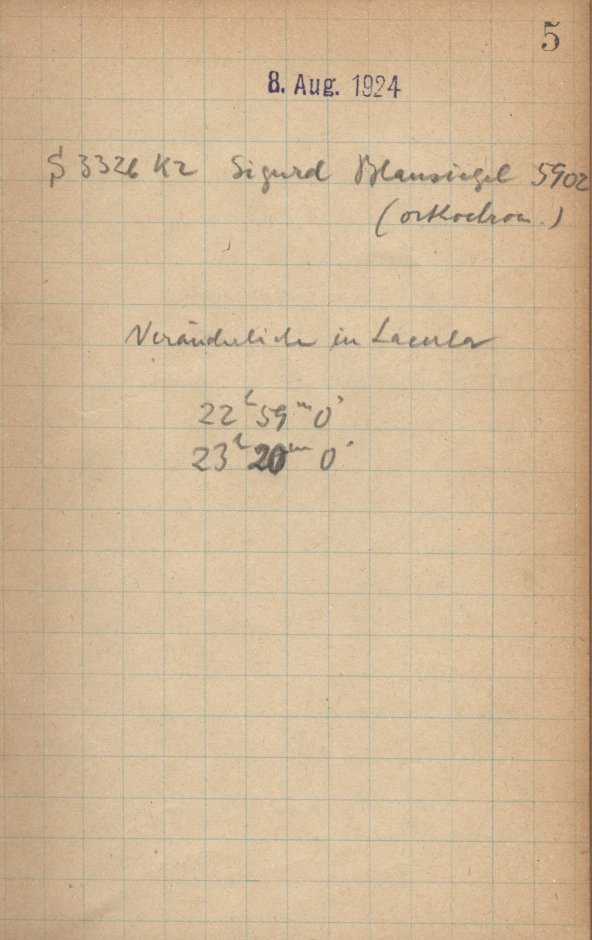 5
8. Aug. 1924
S 3326 Kz Sigurd Blausiegel 5902
(orthochrom.)
Veränderliche in Lacerta
22ʰ 59ᵐ 0ˢ
23ʰ 20ᵐ 0ˢ